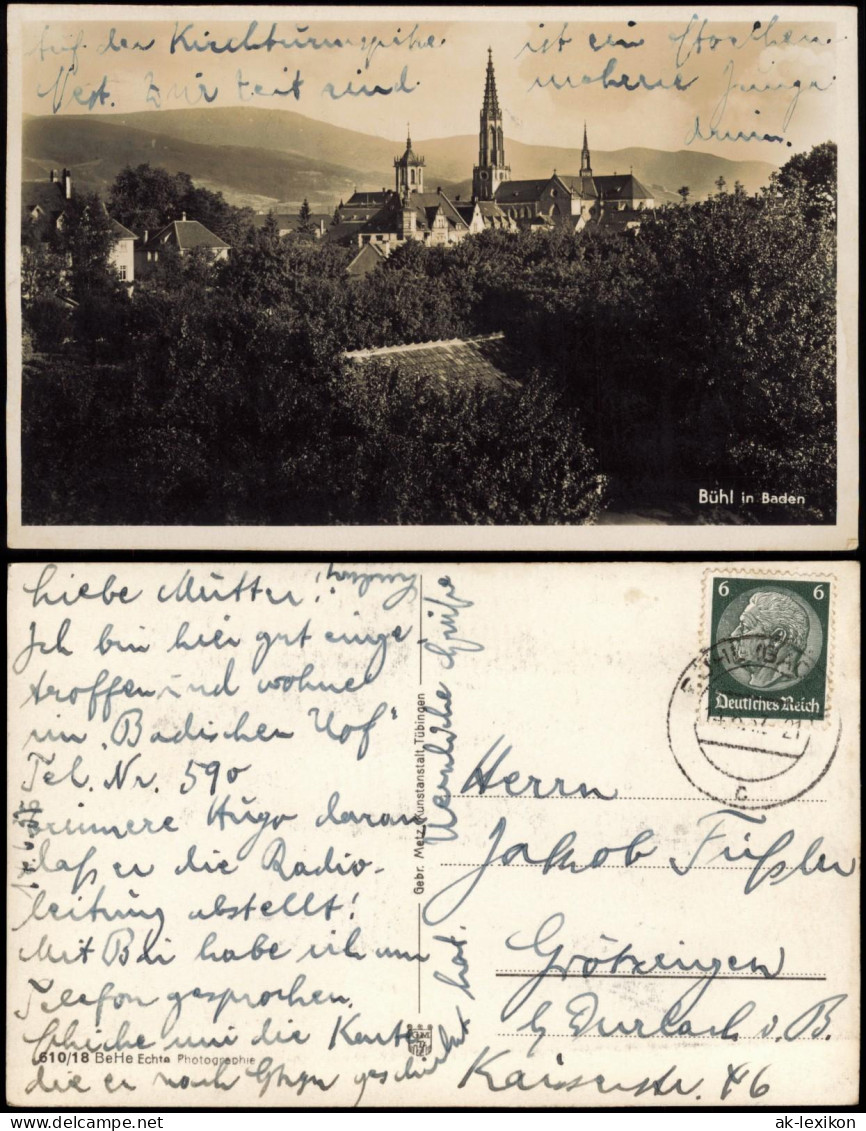 Auf der Kirchturmspitze ist ein Storchen
Nest. Zur Zeit sind mehrere Junge
darin.
Bühl in Baden
Liebe Mutter!
Ich bin hier gut einge-
troffen und wohne
im „Badischen Hof"
Tel. Nr. 590
erinnere Hugo daran
daß er die Radio-
leitung abstellt!
Mit Bbi habe ich am
Telefon gesprochen.
Schicke mir die Karte
die er nach Ghgn geschickt
hat.
Herzliche Grüße
610/18 BeHe Echte Photographie
Gebr. Metz, Kunstanstalt, Tübingen
6 6
Deutsches Reich
BÜHL (BADEN)
c
Herrn
Jakob Füßler
Grötzingen
b/ Durlach i. B.
Kaiserstr. 46
ak-lexikon